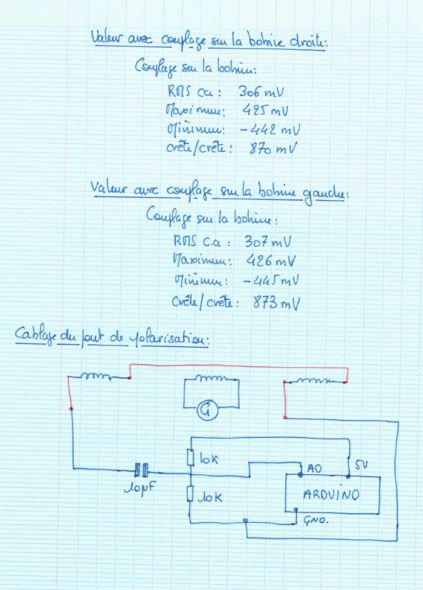 Valeur avec couplage sur la bobine droite:
Couplage sur la bobine:
RMS ca: 306 mV
Maximum: 425 mV
Minimum: -442 mV
crête/crête: 870 mV
Valeur avec couplage sur la bobine gauche:
Couplage sur la bobine:
RMS c.a: 307 mV
Maximum: 426 mV
Minimum: -445 mV
crête/crête: 873 mV
Cablage du pont de polarisation:
G
10K
A0
5V
10µF
10K
ARDUINO
GND.